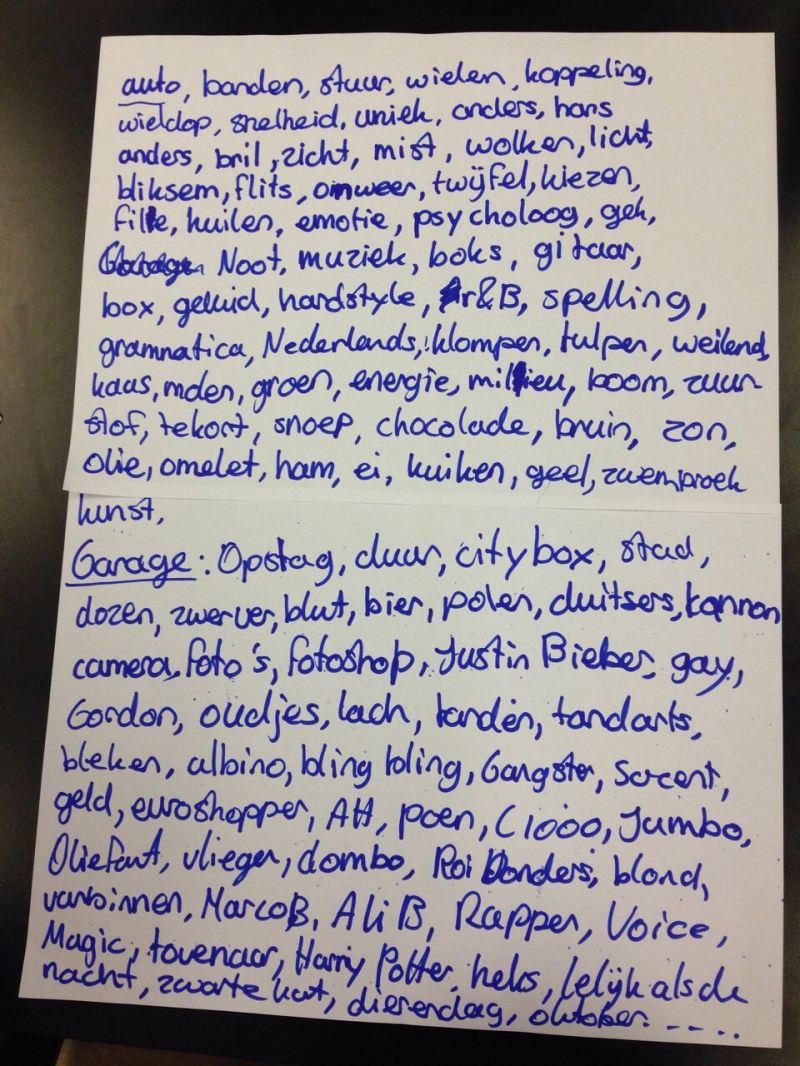 auto, banden, stuur, wielen, koppeling,
wieldop, snelheid, uniek, anders, hans
anders, bril, zicht, mist, wolken, licht,
bliksem, flits, onweer, twijfel, kiezen,
file, huilen, emotie, psycholoog, gek,
Noot, muziek, boks, gitaar,
box, geluid, hardstyle, r&B, spelling,
grammatica, Nederlands, klompen, tulpen, weiland,
kaas, molen, groen, energie, milieu, boom, zuur
stof, tekort, snoep, chocolade, bruin, zon,
olie, omelet, ham, ei, kuiken, geel, zwembroek
kunst,
Garage: Opslag, duur, city box, stad,
dozen, zwerver, blut, bier, polen, duitsers, kannon
camera, foto's, fotoshop, Justin Bieber, gay,
Gordon, oudjes, lach, tanden, tandarts,
bleken, albino, bling bling, Gangster, 50cent,
geld, euroshopper, AH, poen, C1000, Jumbo,
Oliefant, vlieger, dombo, Roi Donders, blond,
vanbinnen, Marco B, Ali B, Rapper, Voice,
Magic, tovenaar, Harry Potter, heks, lelijk als de
nacht, zwarte kat, dierendag, oktober. - - . .